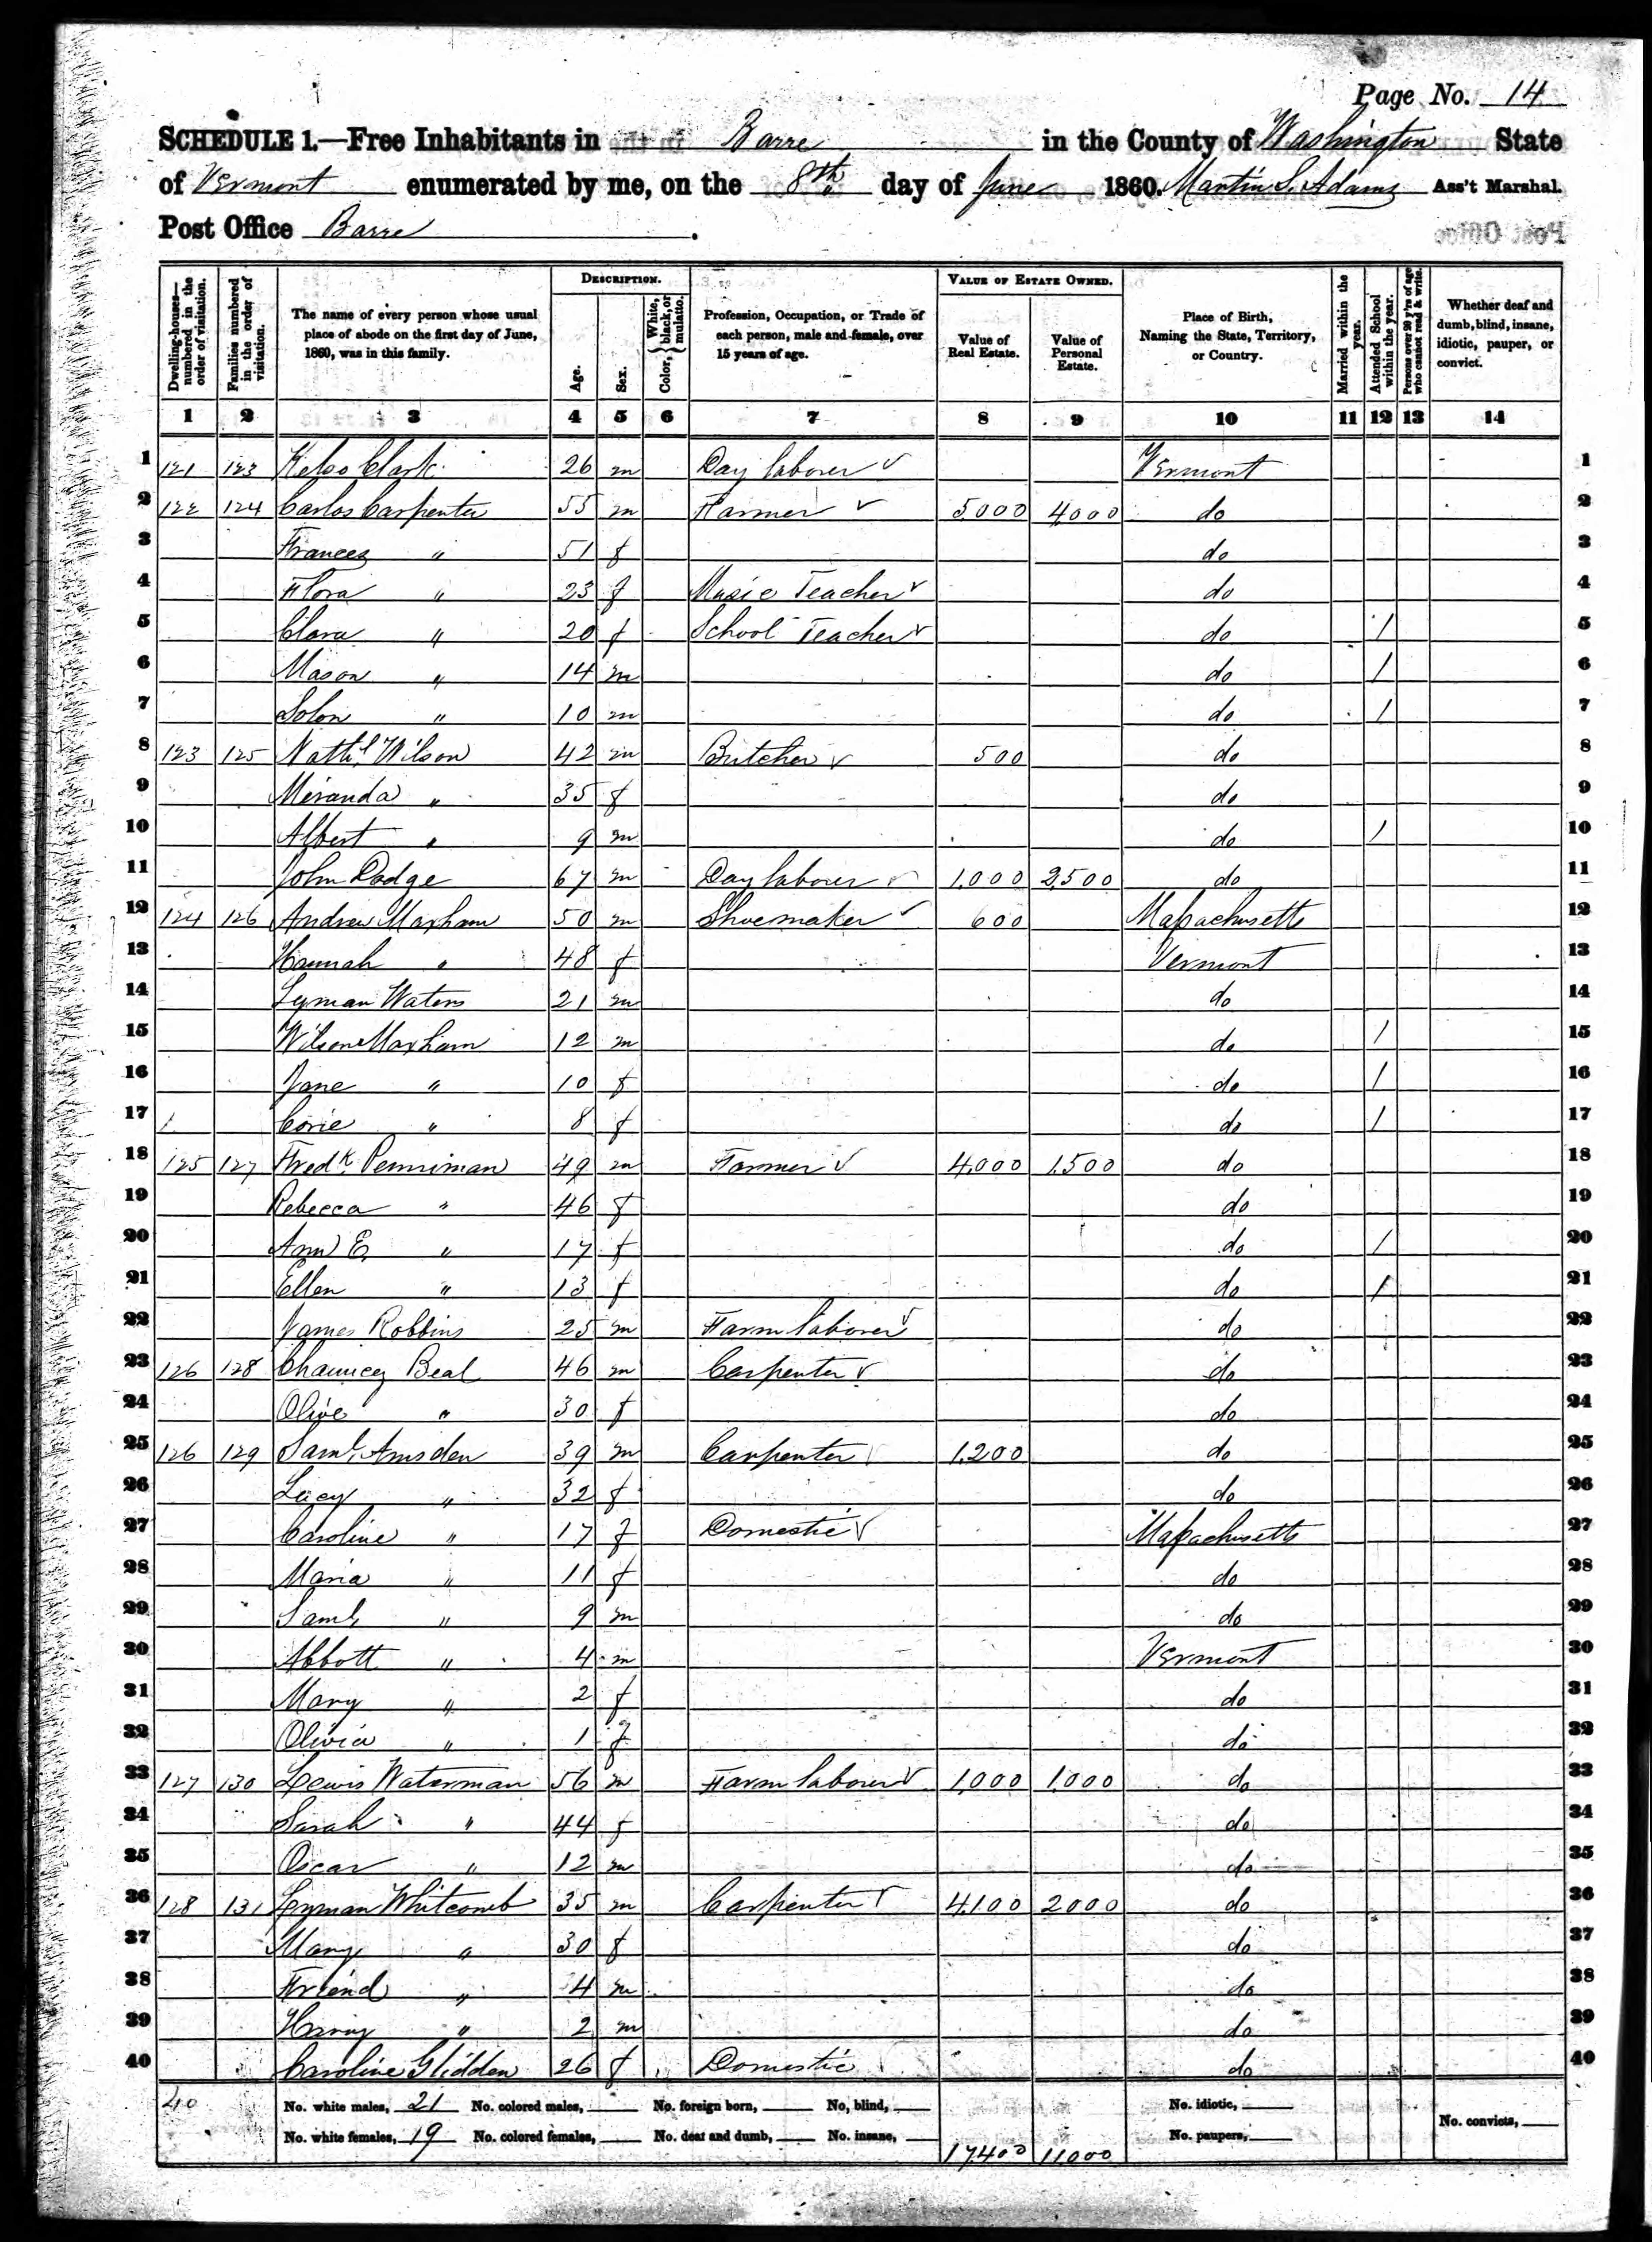 Page No. 14
SCHEDULE 1.—Free Inhabitants in Barre in the County of Washington State
of Vermont enumerated by me, on the 8th day of June 1860. Martin S. Adams Ass't Marshal.
Post Office Barre.
Dwelling-houses—numbered in the order of visitation. Families numbered in the order of visitation. The name of every person whose usual place of abode on the first day of June, 1860, was in this family. DESCRIPTION. Age. Sex. Color, { White, black, or mulatto. Profession, Occupation, or Trade of each person, male and female, over 15 years of age. VALUE OF ESTATE OWNED. Value of Real Estate. Value of Personal Estate. Place of Birth, Naming the State, Territory, or Country. Married within the year. Attended School within the year. Persons over 20 y'rs of age who cannot read & write. Whether deaf and dumb, blind, insane, idiotic, pauper, or convict.
1 2 3 4 5 6 7 8 9 10 11 12 13 14
1 121 123 Kelso Clark 26 m Day laborer ✓ Vermont 1
2 122 124 Carlos Carpenter 55 m Farmer ✓ 5,000 4,000 do 2
3 Frances " 51 f do 3
4 Flora " 23 f Music Teacher ✓ do 4
5 Clara " 20 f School Teacher ✓ do / 5
6 Mason " 14 m do / 6
7 Solon " 10 m do / 7
8 123 125 Nathl Wilson 42 m Butcher ✓ 500 do 8
9 Miranda " 35 f do 9
10 Albert " 9 m do / 10
11 John Dodge 67 m Day laborer ✓ 1,000 2,500 do 11
12 124 126 Andrew Maxham 50 m Shoemaker ✓ 600 Massachusetts 12
13 Hannah " 48 f Vermont 13
14 Lyman Waters 21 m do 14
15 Wilson Maxham 12 m do / 15
16 Jane " 10 f do / 16
17 Corie " 8 f do / 17
18 125 127 Fredk Penniman 49 m Farmer ✓ 4,000 1,500 do 18
19 Rebecca " 46 f do 19
20 Ann E " 17 f do / 20
21 Ellen " 13 f do / 21
22 James Robbins 25 m Farm laborer ✓ do 22
23 126 128 Chauncey Beal 46 m Carpenter ✓ do 23
24 Olive " 30 f do 24
25 126 129 Saml Amsden 39 m Carpenter ✓ 1,200 do 25
26 Lucy " 32 f do 26
27 Caroline " 17 f Domestic ✓ Massachusetts 27
28 Maria " 11 f do 28
29 Saml " 9 m do 29
30 Abbott " 4 m Vermont 30
31 Mary " 2 f do 31
32 Olivia " 1 f do 32
33 127 130 Lewis Waterman 56 m Farm laborer ✓ 1,000 1,000 do 33
34 Sarah " 44 f do 34
35 Oscar " 12 m do 35
36 128 131 Lyman Whitcomb 35 m Carpenter ✓ 4,100 2000 do 36
37 Mary " 30 f do 37
38 Friend " 4 m do 38
39 " 2 m do 39
40 Caroline Glidden 26 f Domestic do 40
40 No. white males, 21 No. colored males, No. foreign born, No, blind, No. idiotic,
No. white females, 19 No. colored females, No. deaf and dumb, No. insane, 17,400 11,000 No. paupers, No. convicts,